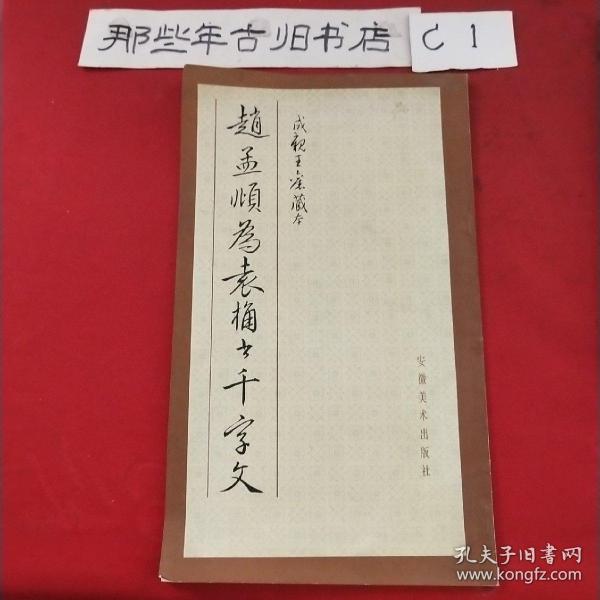 那些年古旧书店 C1
趙孟頫為袁桷书千字文
成親王舊藏本
安徽美术出版社
孔夫子旧書网
www.kongfz.com